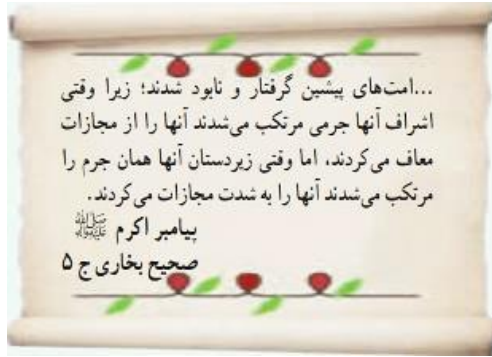 ...امت‌های پیشین گرفتار و نابود شدند؛ زیرا وقتی
اشراف آنها جرمی مرتکب می‌شدند آنها را از مجازات
معاف می‌کردند، اما وقتی زیردستان آنها همان جرم را
مرتکب می‌شدند آنها را به شدت مجازات می‌کردند.
پیامبر اکرم ﷺ
صحیح بخاری ج ۵